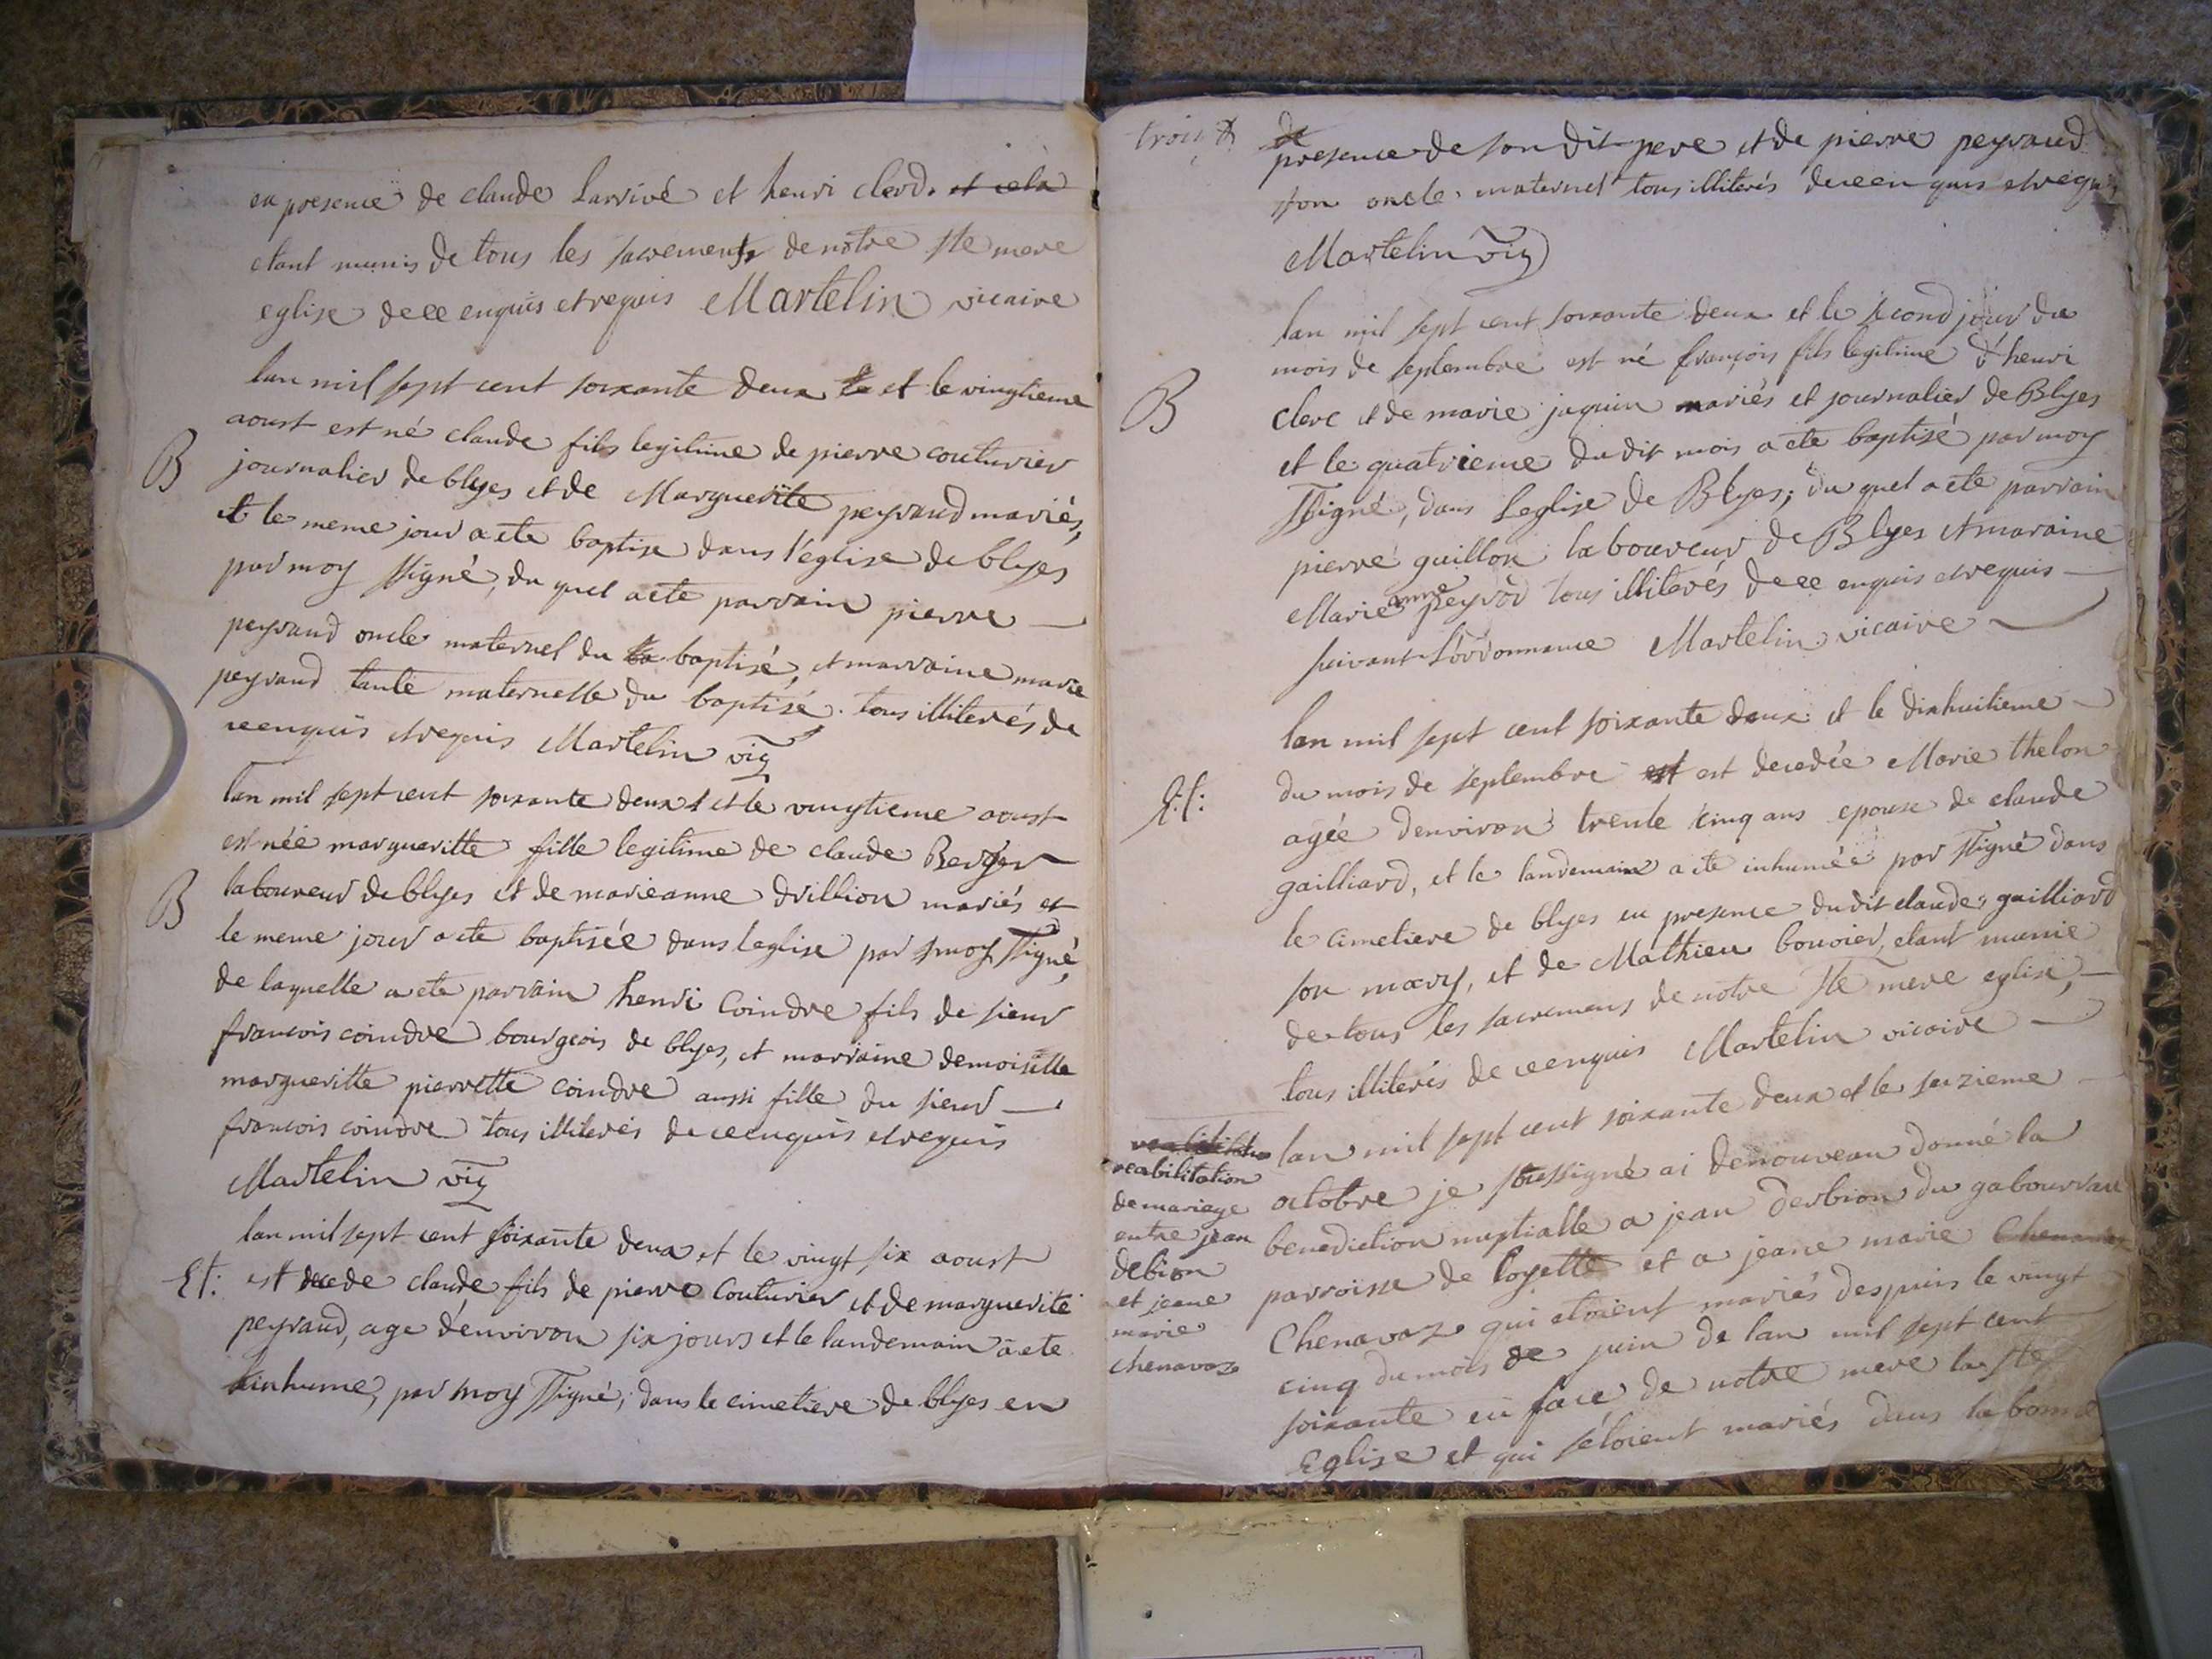 en presence de claude Larrivé et henri clerd. et cela
etant munis de tous les sacrements de nôtre ste mere
eglise de ce enquis et requis Martelin vicaire
lan mil sept cent soixante deux le et le vingtieme
aoust est né claude fils legitime de pierre couturier
B
journalier de blyes et de Marguerite peyraud mariés,
et le meme jour a ete baptise dans l'eglise de blyes
par moy ssigné, du quel a ete parrain pierre
peyraud oncle maternel du la baptisé, et marraine marie
peyraud tante maternelle du baptisé. tous illiterés de
ce enquis et requis Martelin vic
lan mil sept cent soixante deux et le vingtieme aoust
est née margueritte fille legitime de claude Berger
B
laboureur de blyes et de marieanne drillion mariés et
le meme jour a ete baptisée dans leglise par moy ssigné,
de laquelle a ete parrain henri Coindre fils de sieur
francois coindre bourgeois de blyes, et marraine demoiselle
margueritte pierrette coindre aussi fille du sieur
francois coindre tous illiterés de ce enquis et requis
Martelin vic
lan mil sept cent soixante deux et le vingt six aoust
Et:
est decede claude fils de pierre Couturier et de marguerite
peyraud, age d'environ six jours et le landemain a ete
inhume, par moy ssigné, dans le cimetiere de blyes en
trois
de
presence de son dit pere et de pierre peyraud
son oncle maternel tous illiterés de ce enquis et requis
Martelin vic
lan mil sept cent soixante deux et le second jour du
mois de septembre est né françois fils legitime d'henri
B
clerc et de marie jaquin mariés et journalier de Blyes
et le quatrieme du dit mois a ete baptisé par moy
ssigné, dans Leglise de Blyes; du quel a ete parrain
pierre guillon laboureur de Blyes et maraine
Marie anne peyrod tous illiterés de ce enquis et requis
suivant L'ordonnance Martelin vicaire
lan mil sept cent soixante deux et le dixhuitieme
du mois de septembre est est decedée Marie thelon
agée denviron trente cinq ans epouse de claude
gailliard, et le landemain a ete inhumée par ssigné dans
le cimetiere de blyes en presence du dit claude gailliard
son mary, et de Mathieu bouvier, etant munie
de tous les sacremens de notre ste mere eglise,
tous illiterés de ce enquis Martelin vicaire
reabilitation
de mariage
entre jean
debion
et jeane
marie
chenavaz
lan mil sept cent soixante deux et le seizieme
octobre je soussigné ai denouveau donné la
benediction nuptialle a jean derbion du gabourrau
parroisse de loyette et a jeane marie
Chenavaz qui etoient mariés despuis le vingt
cinq du mois de juin de lan mil sept cent
soixante en face de notre mere la ste
Eglise et qui s'étoient mariés dans la bonne